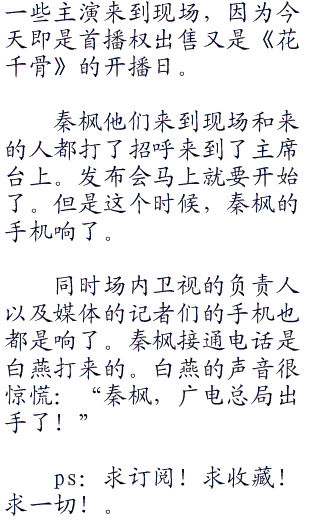 一些主演来到现场，因为今
天即是首播权出售又是《花
千骨》的开播日。
秦枫他们来到现场和来
的人都打了招呼来到了主席
台上。发布会马上就要开始
了。但是这个时候，秦枫的
手机响了。
同时场内卫视的负责人
以及媒体的记者们的手机也
都是响了。秦枫接通电话是
白燕打来的。白燕的声音很
惊慌：“秦枫，广电总局出
手了！”
ps：求订阅！求收藏！
求一切！。